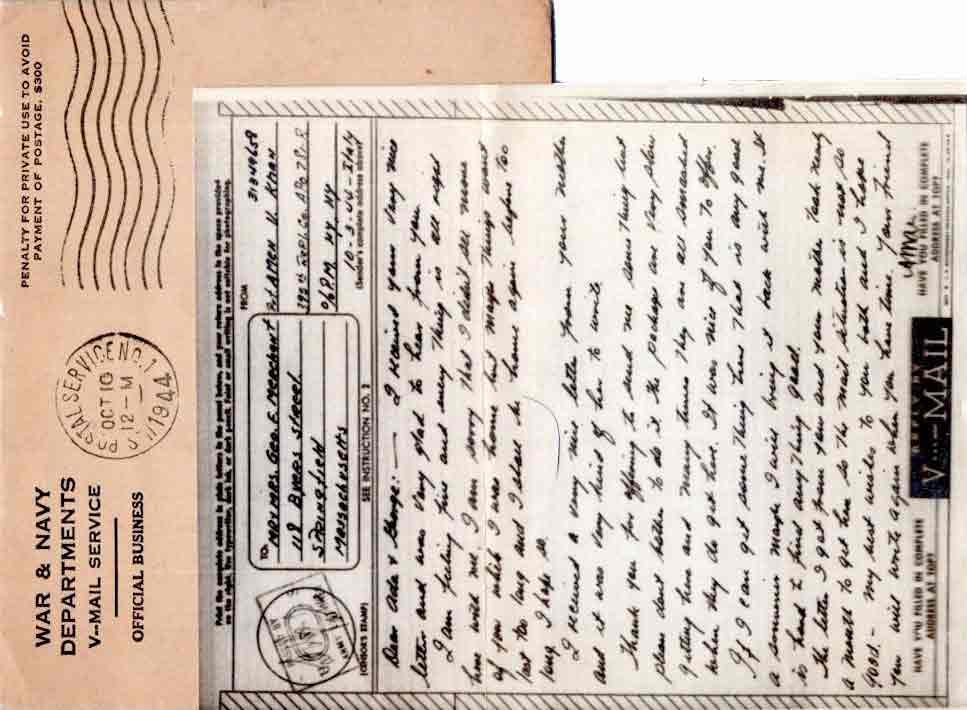 WAR & NAVY
DEPARTMENTS
V-MAIL SERVICE
OFFICIAL BUSINESS
U.S. POSTAL SERVICE NO. 1
OCT 10
12-M
1944
PENALTY FOR PRIVATE USE TO AVOID
PAYMENT OF POSTAGE, $300
Print the complete address in plain letters in the panel below, and your return address in the space provided
on the right. Use typewriter, dark ink, or dark pencil. Faint or small writing is not suitable for photographing.
TO:
MR. & MRS. GEO. E.
118 BYERS STREET
SPRINGFIELD
MASSACHUSETTS
FROM
V. KHAN
APO 782
c/o P.M. NY NY
10-3-44-ITALY
(Sender's complete address above)
(CENSOR'S STAMP)
SEE INSTRUCTION NO. 2
Dear Ada & George: — I received your very nice
letter and was very glad to hear from you.
I am feeling fine and every thing is all right
here with me. I am sorry that I didn't see more
of you while I was home but maybe things wont
last too long and I shall be home again before too
long I hope so.
I received a very nice letter from your mother
and it was very kind of her to write
Thank you for offering to send me some thing but
please dont bother to do it the packages are very slow
getting here and many times they are all smashed
when they do get here. It was nice of you to offer.
If I can get some thing here that is any good
a souvenir maybe I will bring it back with me. It
is hard to find any thing good.
The letter I got from you and your mother took nearly
a month to get here so the mail situation is not so
good — my best wishes to you both and I hope
you will write again when you have time. Your friend
HAVE YOU FILLED IN COMPLETE
ADDRESS AT TOP?
V-MAIL
HAVE YOU FILLED IN COMPLETE
ADDRESS AT TOP?